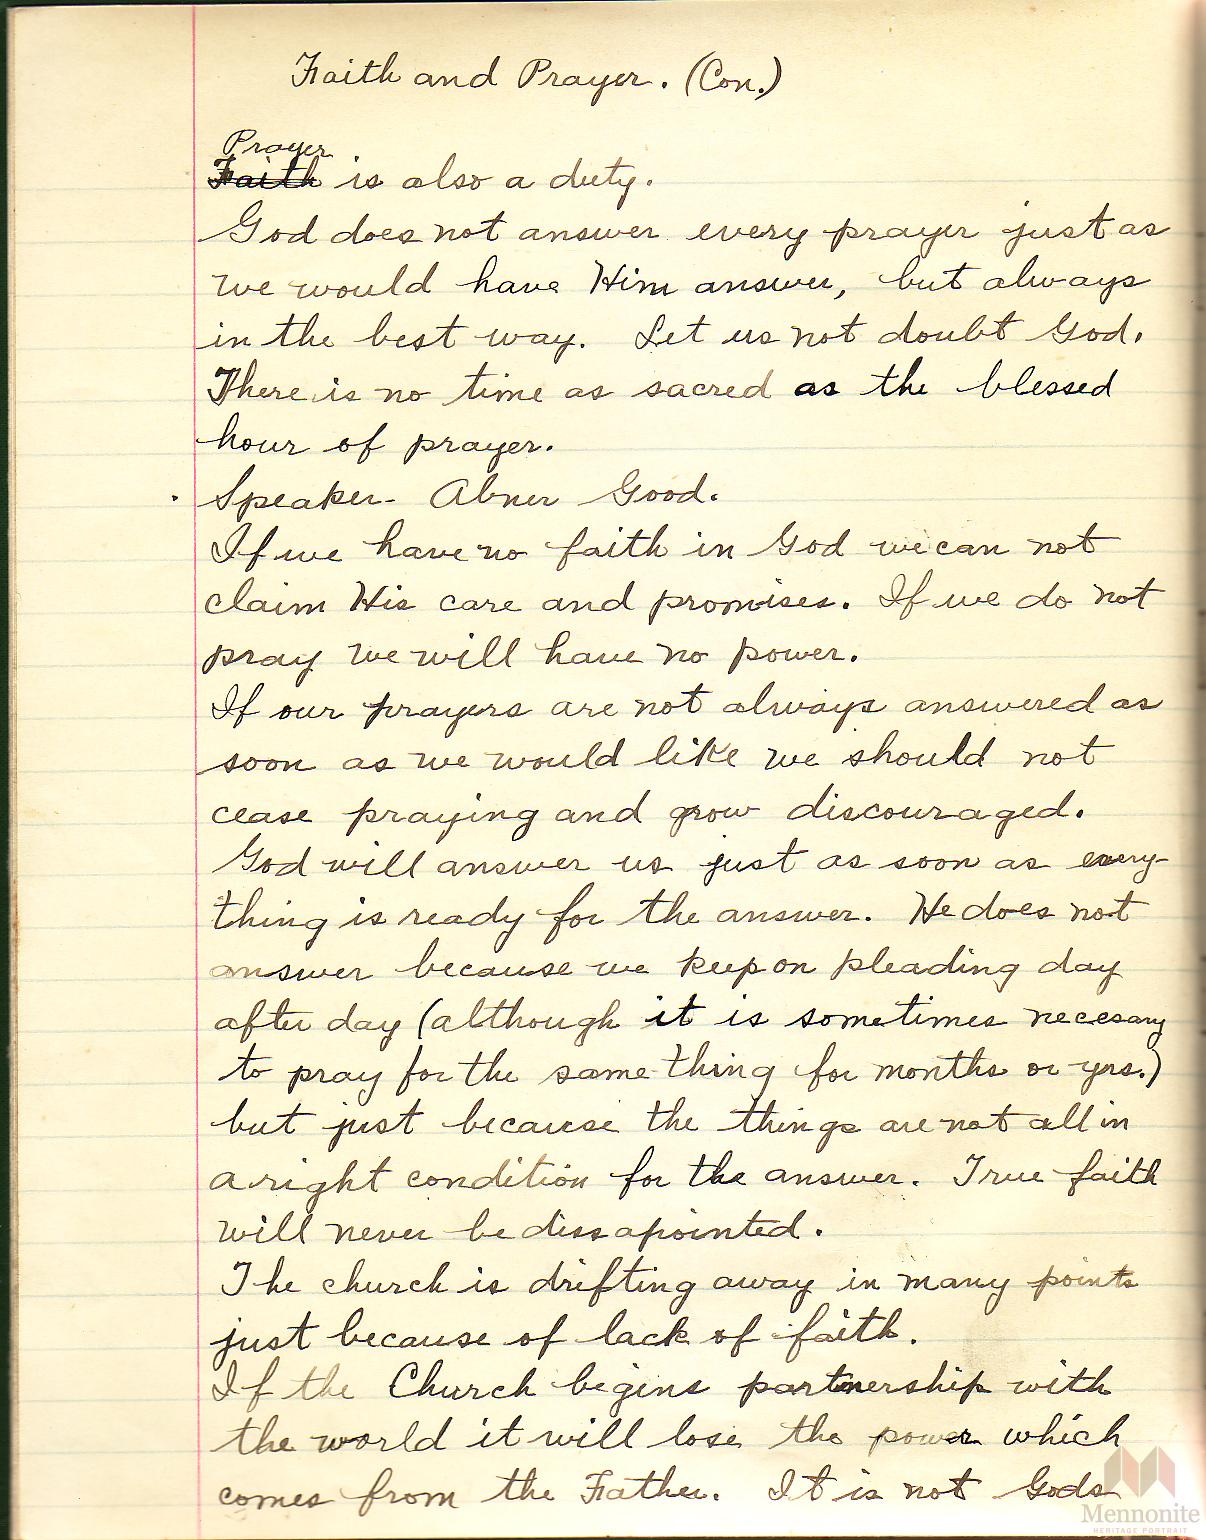 Faith and Prayer. (Con.)
Prayer
Faith is also a duty.
God does not answer every prayer just as
we would have Him answer, but always
in the best way. Let us not doubt God.
There is no time as sacred as the blessed
hour of prayer.
Speaker- Abner Good.
If we have no faith in God we can not
claim His care and promises. If we do not
pray we will have no power.
If our prayers are not always answered as
soon as we would like we should not
cease praying and grow discouraged.
God will answer us just as soon as every-
thing is ready for the answer. He does not
answer because we keep on pleading day
after day (although it is sometimes necesary
to pray for the same thing for months or yrs.)
but just because the things are not all in
a right condition for the answer. True faith
will never be dissapointed.
The church is drifting away in many points
just because of lack of faith.
If the Church begins partnership with
the world it will lose the power which
comes from the Father. It is not Gods
Mennonite
HERITAGE PORTRAIT